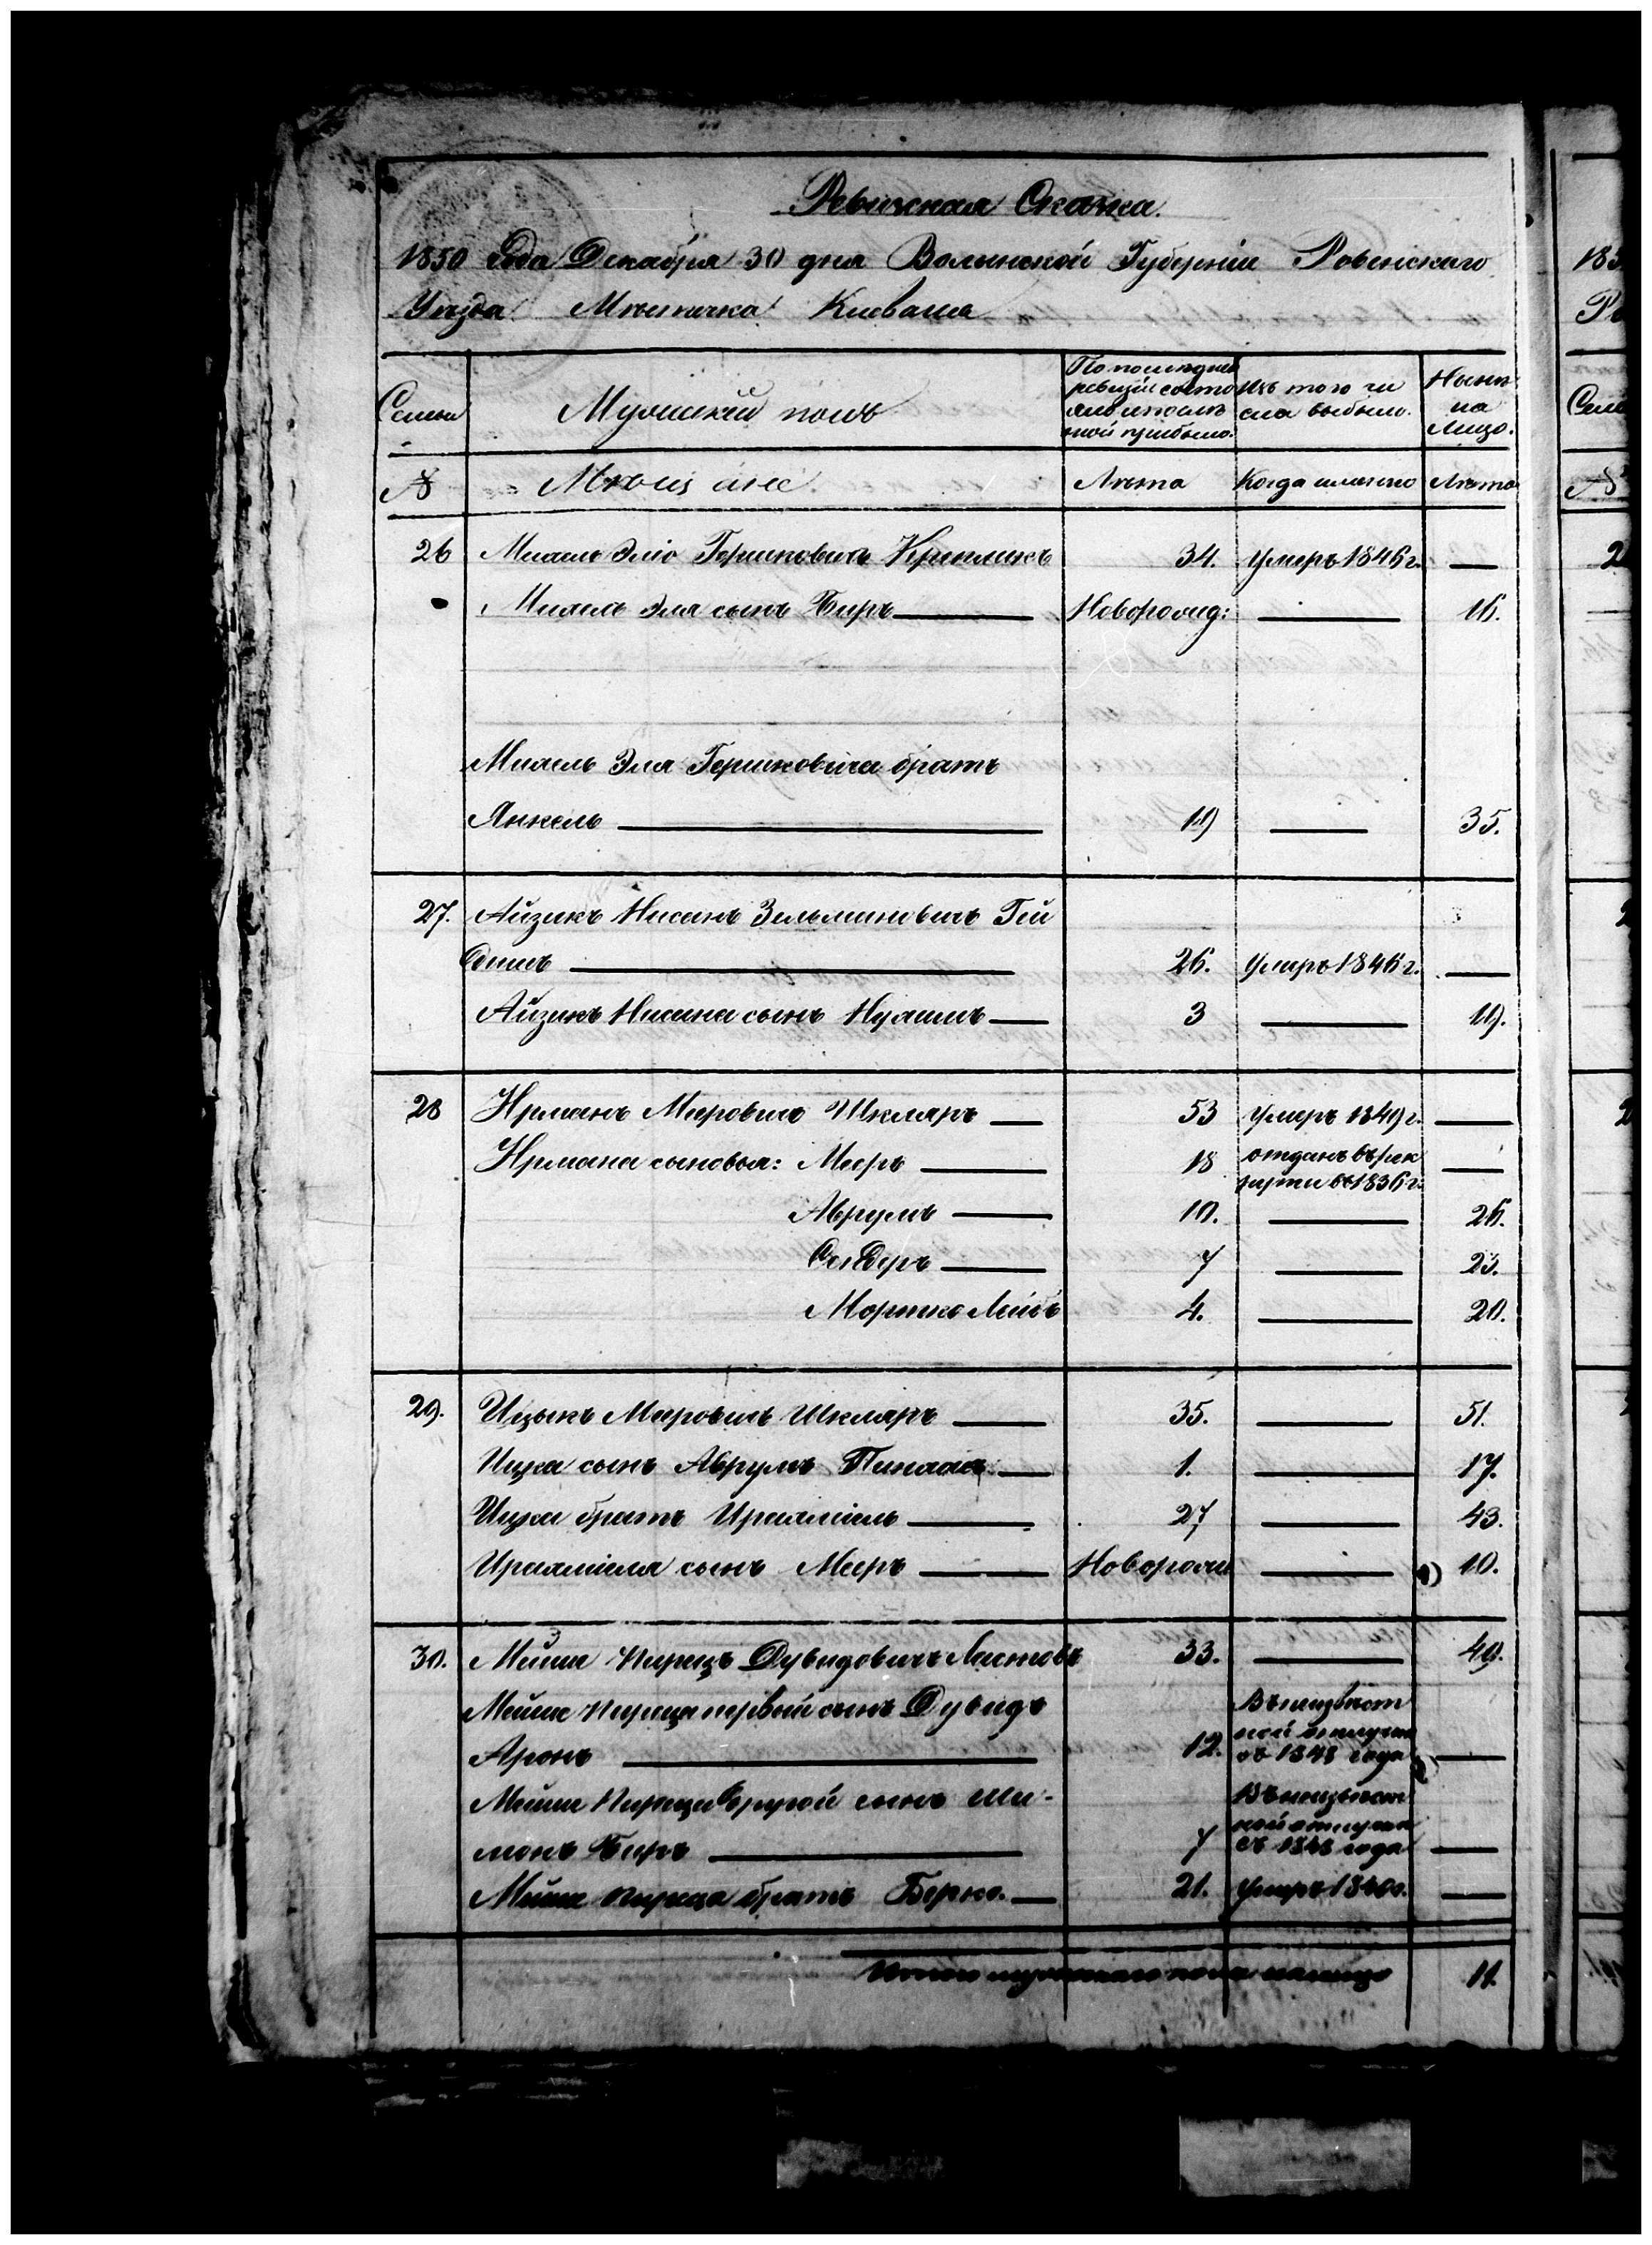 Ревизская Сказка.
1850 года Декабря 30 дня Волынской Губерніи Ровенскаго
Уѣзда Мѣстечка Клеваня
Семьи
Мужескій полъ
По последней
ревизіи состо
яло и послѣ
ной прибыло.
Изъ того чи
сла выбыло.
Нынѣ
на
Лицо.
№
Мѣщане
Лѣта
Когда именно
Лѣта
26 Михель Эліо Гершковичъ 34. умеръ 1846 г. —
Михель Эля сынъ Беръ — Новорожд: — 16.
Михель Эля Гершковича братъ
Янкель — 19 — 35.
27. Айзикъ Нисанъ Зельмановичъ Гей
26. умеръ 1846 г. —
Айзикъ Нисана сынъ — 3 — 19.
28 Мееровичъ Шкляръ — 53 умеръ 1849 г. —
сыновья: Мееръ — 18 отданъ въ рек
руты въ 1836 г. —
Аврумъ — 10. — 26.
Сендеръ — 7 — 23.
Мортко Лейбъ 4. — 20.
29. Ицыкъ Мееровичъ Шкляръ — 35. — 51.
Ицка сынъ Аврумъ Пинхасъ — 1. — 17.
Ицка братъ — 27 — 43.
сынъ Мееръ — Новорож — 10.
30. Перецъ Дувидовичъ 33. — 49.
Переца первый сынъ Дувидъ
Аронъ — 12. Въ неизвѣст
ной отлучкѣ
съ 1848 года —
Переца другой сынъ Ши-
монъ Беръ — 7 Въ неизвѣст
ной отлучкѣ
съ 1848 года —
Переца братъ Берко. — 21. умеръ 1840 г. —
Итого мужескаго пола налицо 11.